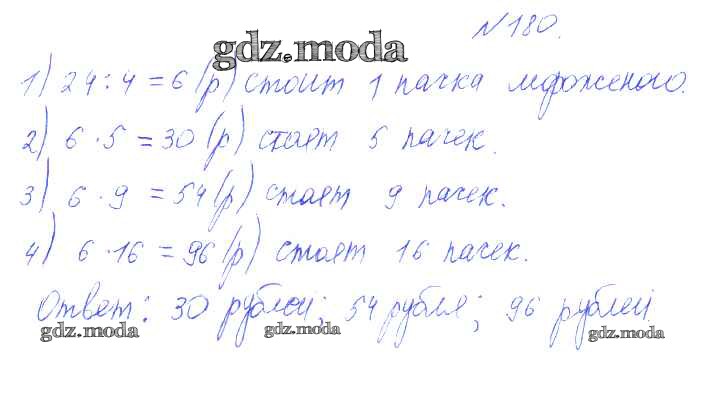 №180.
gdz.moda
1) 24:4=6(р) стоит 1 пачка мороженого.
2) 6·5=30(р) стоят 5 пачек.
3) 6·9=54(р) стоят 9 пачек.
4) 6·16=96(р) стоят 16 пачек.
Ответ: 30 рублей; 54 рубля; 96 рублей
gdz.moda gdz.moda gdz.moda